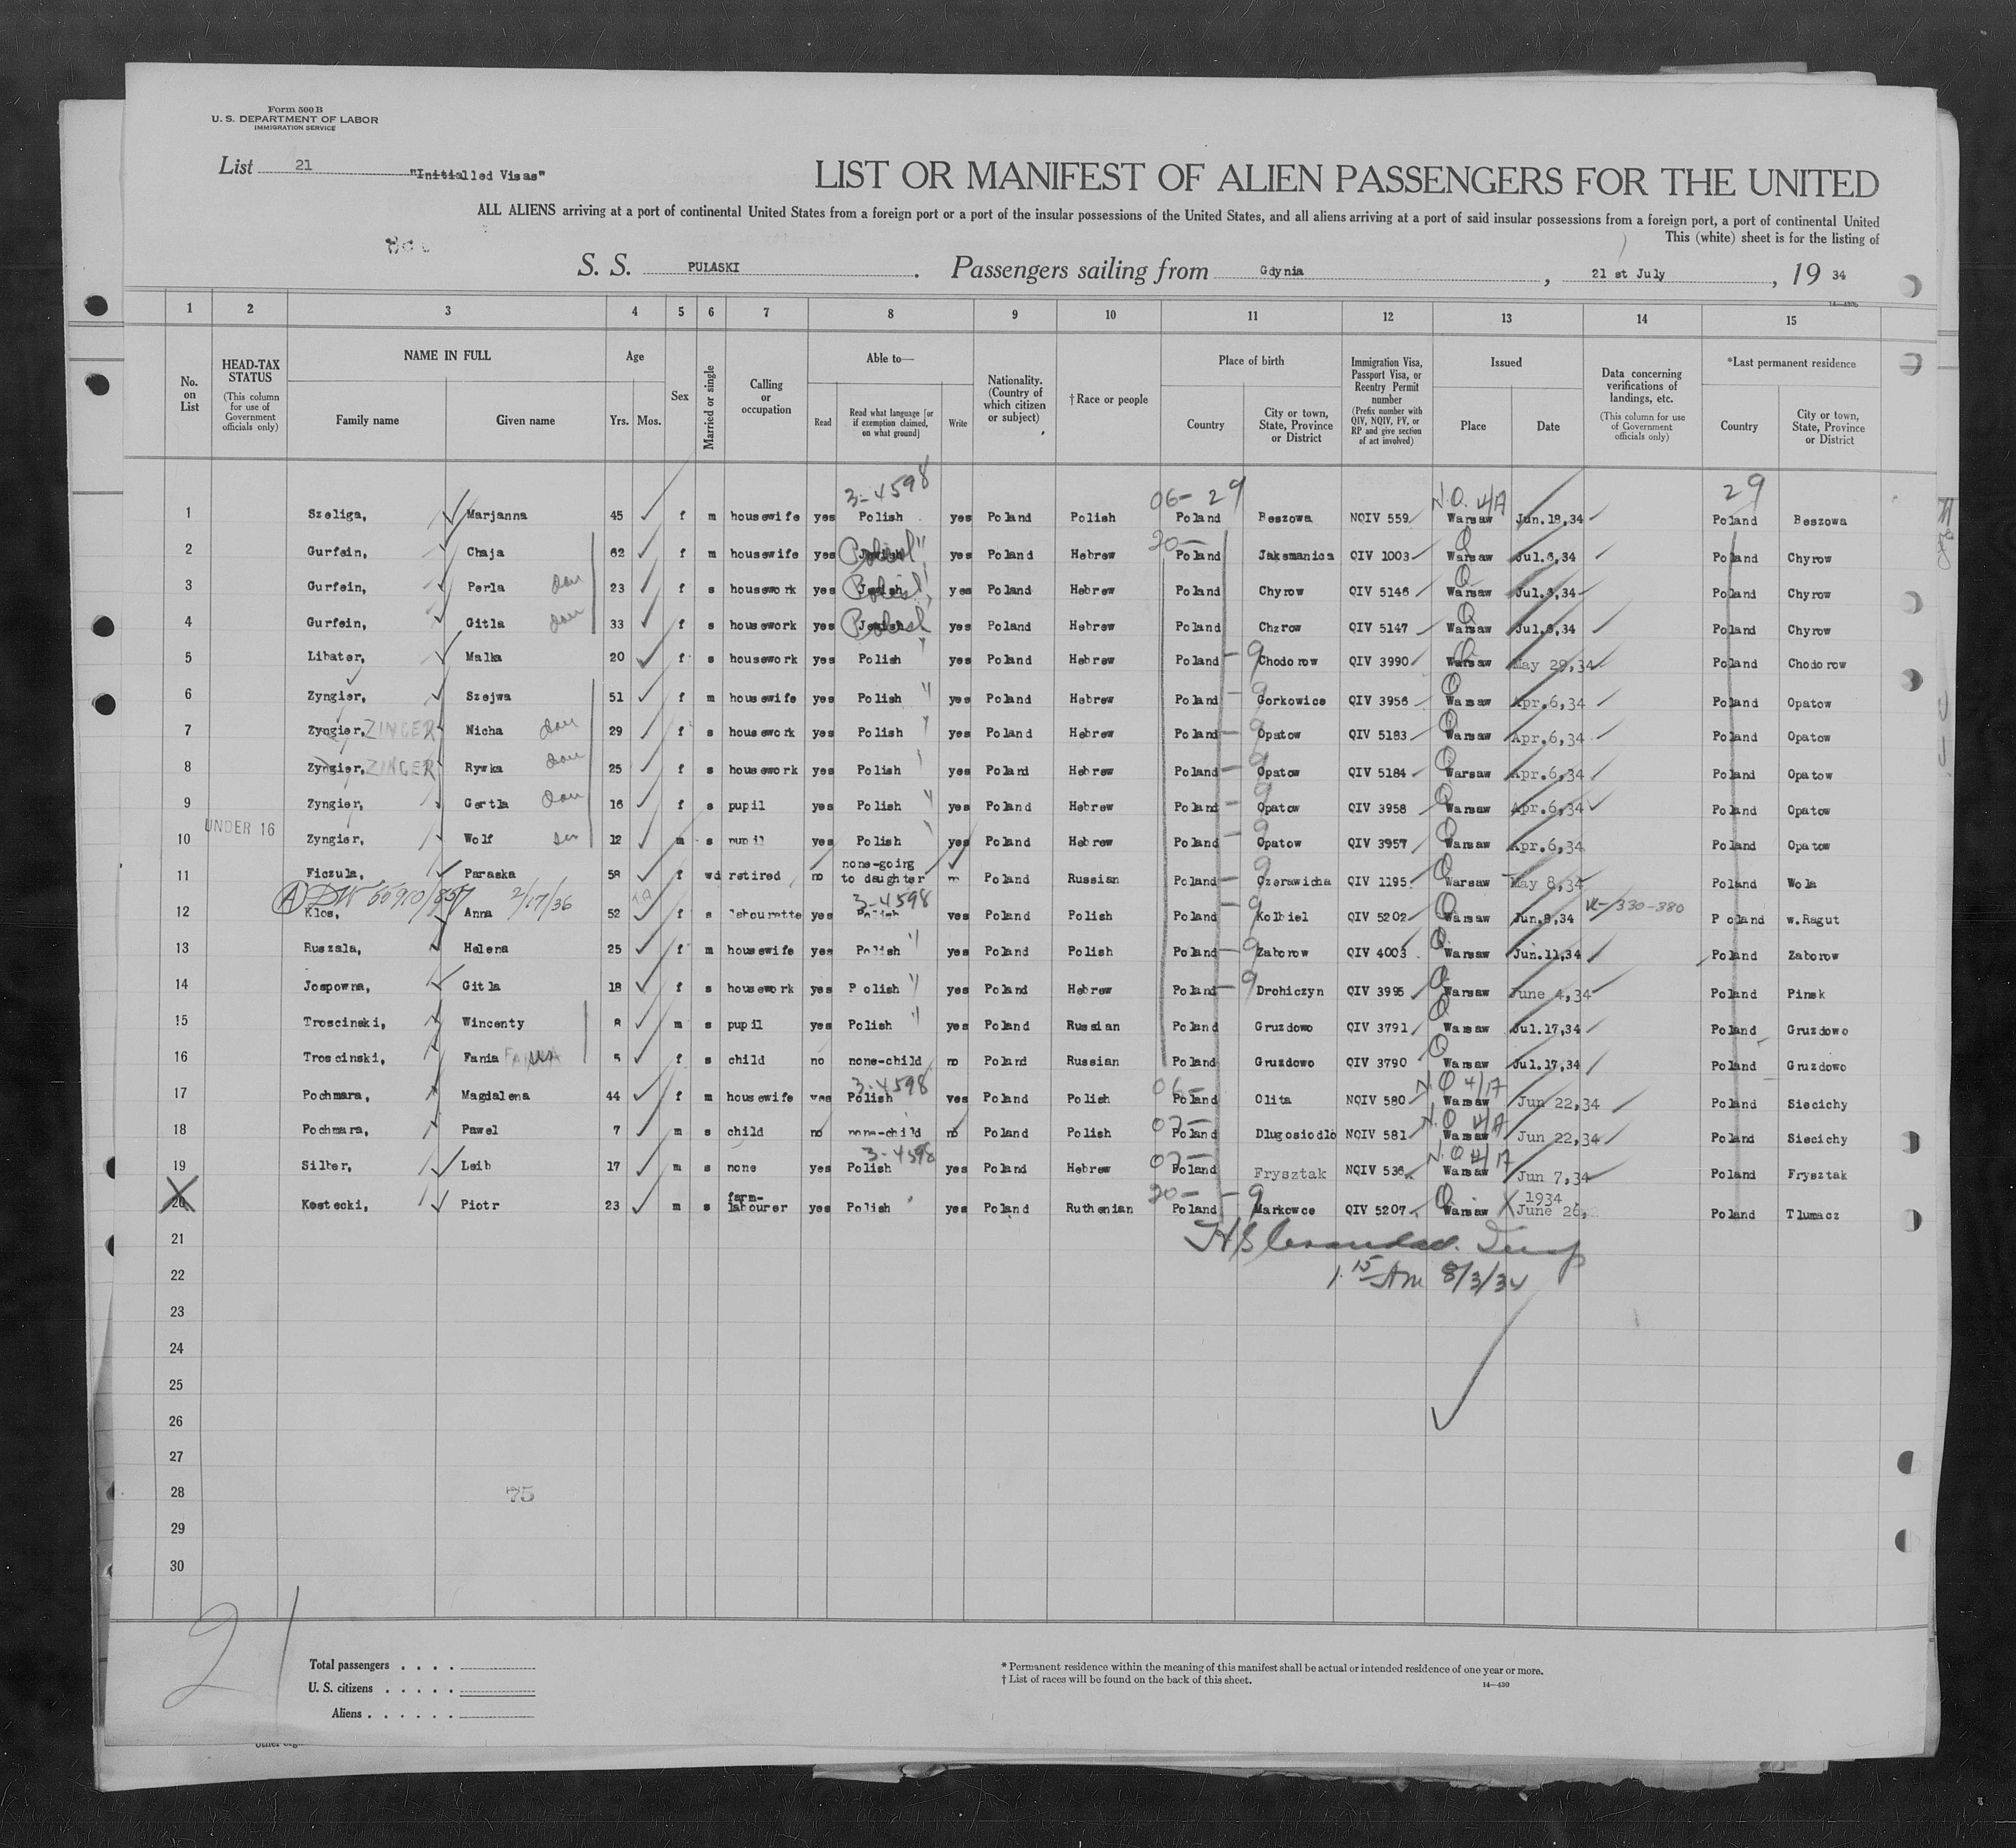 Form 500 B
U. S. DEPARTMENT OF LABOR
IMMIGRATION SERVICE
List 21 "Initialled Visas"
LIST OR MANIFEST OF ALIEN PASSENGERS FOR THE UNITED
ALL ALIENS arriving at a port of continental United States from a foreign port or a port of the insular possessions of the United States, and all aliens arriving at a port of said insular possessions from a foreign port, a port of continental United
This (white) sheet is for the listing of
S. S. PULASKI. Passengers sailing from Gdynia, 21 st July, 19 34
1 2 3 4 5 6 7 8 9 10 11 12 13 14 15
No. on List
HEAD-TAX STATUS (This column for use of Government officials only)
NAME IN FULL Family name Given name
Age Yrs. Mos.
Sex
Married or single
Calling or occupation
Able to— Read Read what language [or if exemption claimed, on what ground] Write
Nationality. (Country of which citizen or subject)
†Race or people
Place of birth Country City or town, State, Province or District
Immigration Visa, Passport Visa, or Reentry Permit number (Prefix number with QIV, NQIV, PV, or RP and give section of act involved)
Issued Place Date
Data concerning verifications of landings, etc. (This column for use of Government officials only)
*Last permanent residence Country City or town, State, Province or District
3-4598 06- 29 N.O. 4/A 29
1 Szeliga, Marjanna 45 f m housewife yes Polish yes Poland Polish Poland Beszowa NQIV 559 Warsaw Jun.18,34 Poland Beszowa
20-
2 Gurfein, Chaja 62 f m housewife yes Polish yes Poland Hebrew Poland Jaksmanica QIV 1003 Warsaw Jul.6,34 Poland Chyrow
3 Gurfein, Perla dau 23 f s housework yes Polish yes Poland Hebrew Poland Chyrow QIV 5146 Warsaw Jul.6,34 Poland Chyrow
4 Gurfein, Gitla dau 33 f s housework yes Polish yes Poland Hebrew Poland Chzrow QIV 5147 Warsaw Jul.6,34 Poland Chyrow
5 Libster, Malka 20 f s housework yes Polish yes Poland Hebrew Poland 9 Chodorow QIV 3990 Warsaw May 29,34 Poland Chodorow
6 Zyngier, Szejwa 51 f m housewife yes Polish yes Poland Hebrew Poland 9 Gorkowice QIV 3956 Warsaw Apr.6,34 Poland Opatow
7 Zyngier, ZINGER Nicha dau 29 f s housework yes Polish yes Poland Hebrew Poland 9 Opatow QIV 5183 Warsaw Apr.6,34 Poland Opatow
8 Zyngier, ZINGER Rywka dau 25 f s housework yes Polish yes Poland Hebrew Poland 9 Opatow QIV 5184 Warsaw Apr.6,34 Poland Opatow
9 Zyngier, Gertla dau 16 f s pupil yes Polish yes Poland Hebrew Poland 9 Opatow QIV 3958 Warsaw Apr.6,34 Poland Opatow
UNDER 16
10 Zyngier, Wolf son 12 m s pupil yes Polish yes Poland Hebrew Poland 9 Opatow QIV 3957 Warsaw Apr.6,34 Poland Opatow
11 Ficzula, Paraska 58 f wd retired no none-going to daughter no Poland Russian Poland 9 Czerawicha QIV 1195 Warsaw May 8,34 Poland Wola
2/17/36 3-4598 330-380
12 Klos, Anna 52 f s labourette yes Polish yes Poland Polish Poland 9 Kolbiel QIV 5202 Warsaw Jun.8,34 Poland w.Ragut
13 Ruszala, Helena 25 f m housewife yes Polish yes Poland Polish Poland 9 Zaborow QIV 4003 Warsaw Jun.11,34 Poland Zaborow
14 Jospowna, Gitla 18 f s housework yes Polish yes Poland Hebrew Poland 9 Drohiczyn QIV 3995 Warsaw June 4,34 Poland Pinsk
15 Troscinski, Wincenty 8 m s pupil yes Polish yes Poland Russian Poland Gruzdowo QIV 3791 Warsaw Jul.17,34 Poland Gruzdowo
16 Troscinski, Fania 5 f s child no none-child no Poland Russian Poland Gruzdowo QIV 3790 Warsaw Jul.17,34 Poland Gruzdowo
3-4598 06-
17 Pochmara, Magdalena 44 f m housewife yes Polish yes Poland Polish Poland Olita NQIV 580 Warsaw Jun 22,34 Poland Siecichy
07-
18 Pochmara, Pawel 7 m s child no none-child no Poland Polish Poland Dlugosiodlo NQIV 581 Warsaw Jun 22,34 Poland Siecichy
3-4598 07-
19 Silber, Leib 17 m s none yes Polish yes Poland Hebrew Poland Frysztak NQIV 536 Warsaw Jun 7,34 Poland Frysztak
20-
20 Kostecki, Piotr 23 m s farm-labourer yes Polish yes Poland Ruthenian Poland 9 Markowce QIV 5207 Warsaw 1934 June 26, Poland Tlumacz
21
22 1.15 Am 8/3/34
23
24
25
26
27
28 75
29
30
21
Total passengers
U. S. citizens
Aliens
* Permanent residence within the meaning of this manifest shall be actual or intended residence of one year or more.
† List of races will be found on the back of this sheet.
14—430